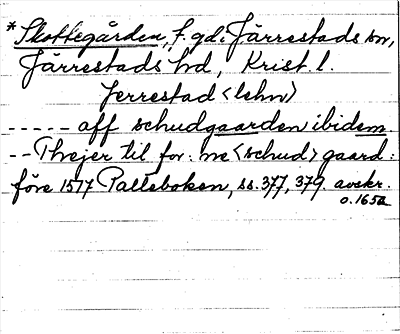 *Skottegården, f. gd. i Järrestads sn,
Järrestads hd, Krist. l.
Jerrestad <lehn>
----- aff schudgaarden ibidem.
-- Threjer til for: ne <schud> gaard:
före 1577 Palteboken, ss. 377, 379. avskr.
o. 1650